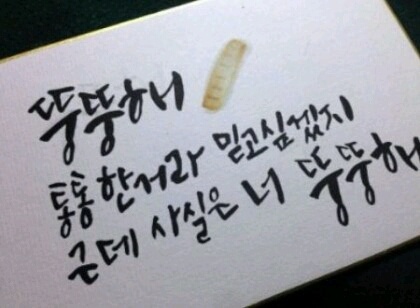 뚱뚱해
통통한거라 믿고싶겠지
근데 사실은 너 뚱뚱해